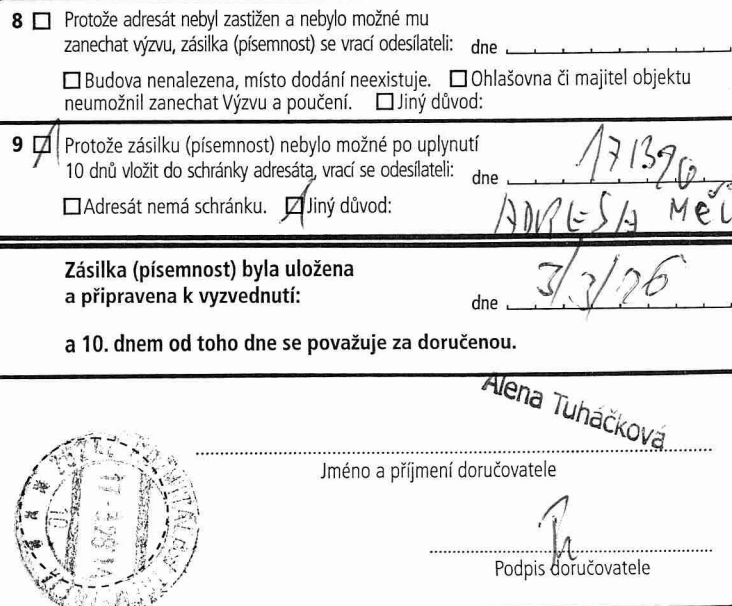 8 ☐ Protože adresát nebyl zastižen a nebylo možné mu
zanechat výzvu, zásilka (písemnost) se vrací odesílateli: dne
☐ Budova nenalezena, místo dodání neexistuje. ☐ Ohlašovna či majitel objektu
neumožnil zanechat Výzvu a poučení. ☐ Jiný důvod:
9 ☑ Protože zásilku (písemnost) nebylo možné po uplynutí
10 dnů vložit do schránky adresáta, vrací se odesílateli: dne
☐ Adresát nemá schránku. ☑ Jiný důvod: ADRESA MěÚ
Zásilka (písemnost) byla uložena
a připravena k vyzvednutí: dne 3/3/26
a 10. dnem od toho dne se považuje za doručenou.
Alena Tuháčková
Jméno a příjmení doručovatele
Podpis doručovatele